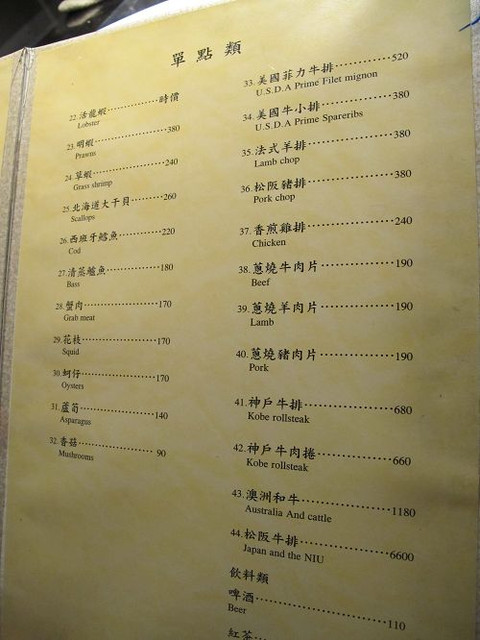 單點類
22.活龍蝦 時價
Lobster
23.明蝦 380
Prawns
24.草蝦 240
Grass shrimp
25.北海道大干貝 260
Scallops
26.西班牙鱈魚 220
Cod
27.清蒸鱸魚 180
Bass
28.蟹肉 170
Grab meat
29.花枝 170
Squid
30.蚵仔 170
Oysters
31.蘆筍 140
Asparagus
32.香菇 90
Mushrooms
33.美國菲力牛排 520
U.S.D.A Prime Filet mignon
34.美國牛小排 380
U.S.D.A Prime Spareribs
35.法式羊排 380
Lamb chop
36.松阪豬排 380
Pork chop
37.香煎雞排 240
Chicken
38.蔥燒牛肉片 190
Beef
39.蔥燒羊肉片 190
Lamb
40.蔥燒豬肉片 190
Pork
41.神戶牛排 680
Kobe rollsteak
42.神戶牛肉捲 660
Kobe rollsteak
43.澳洲和牛 1180
Australia And cattle
44.松阪牛排 6600
Japan and the NIU
飲料類
啤酒 110
Beer
紅茶